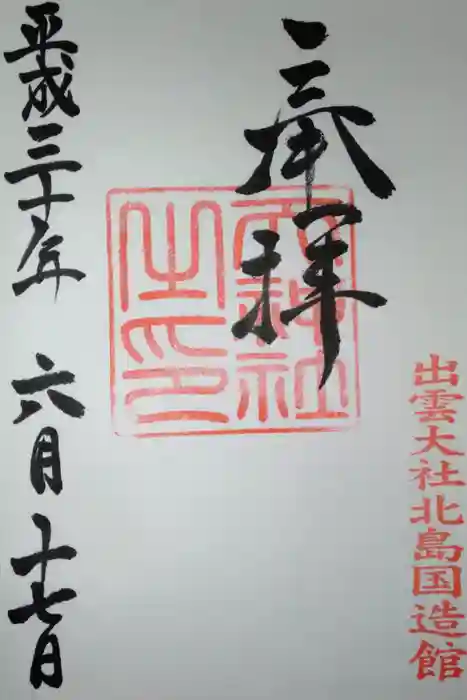 出雲大社北島国造館
奉拝
天神社
之印
平成三十年 六月十七日